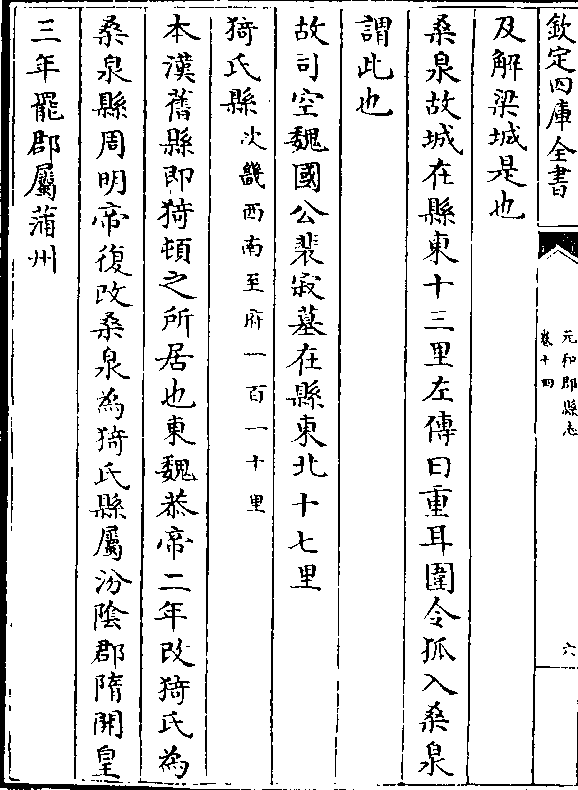 欽定四庫全書
元和郡縣志
卷十四
六
及解梁城是也
桑泉故城在縣東十三里左傳曰重耳圍令狐入桑泉
謂此也
故司空魏國公裴寂墓在縣東北十七里
猗氏縣次畿西南至府一百一十里
本漢舊縣即猗頓之所居也東魏恭帝二年改猗氏為
桑泉縣周明帝復改桑泉為猗氏縣屬汾陰郡隋開皇
三年罷郡屬蒲州